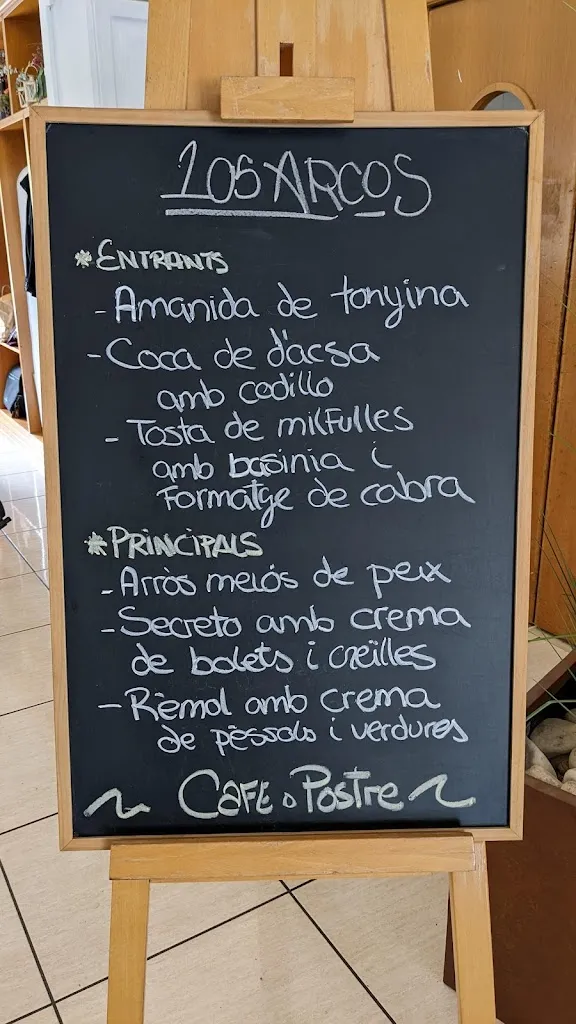 LOS ARCOS
*ENTRANTS
- Amanida de tonyina
- Coca de d'acsa
amb codillo
- Tosta de milfulles
amb basinia i
Formatge de cabra
*PRINCIPALS
- Arròs melós de peix
- Secreto amb crema
de bolets i creïlles
- Rèmol amb crema
de pèssols i verdures
~ CAFE o Postre ~